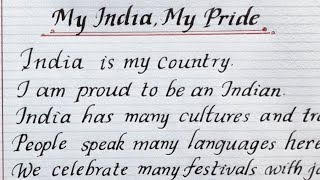 My India, My Pride
India is my country.
I am proud to be an Indian.
India has many cultures and
People speak many languages here
We celebrate many festivals with